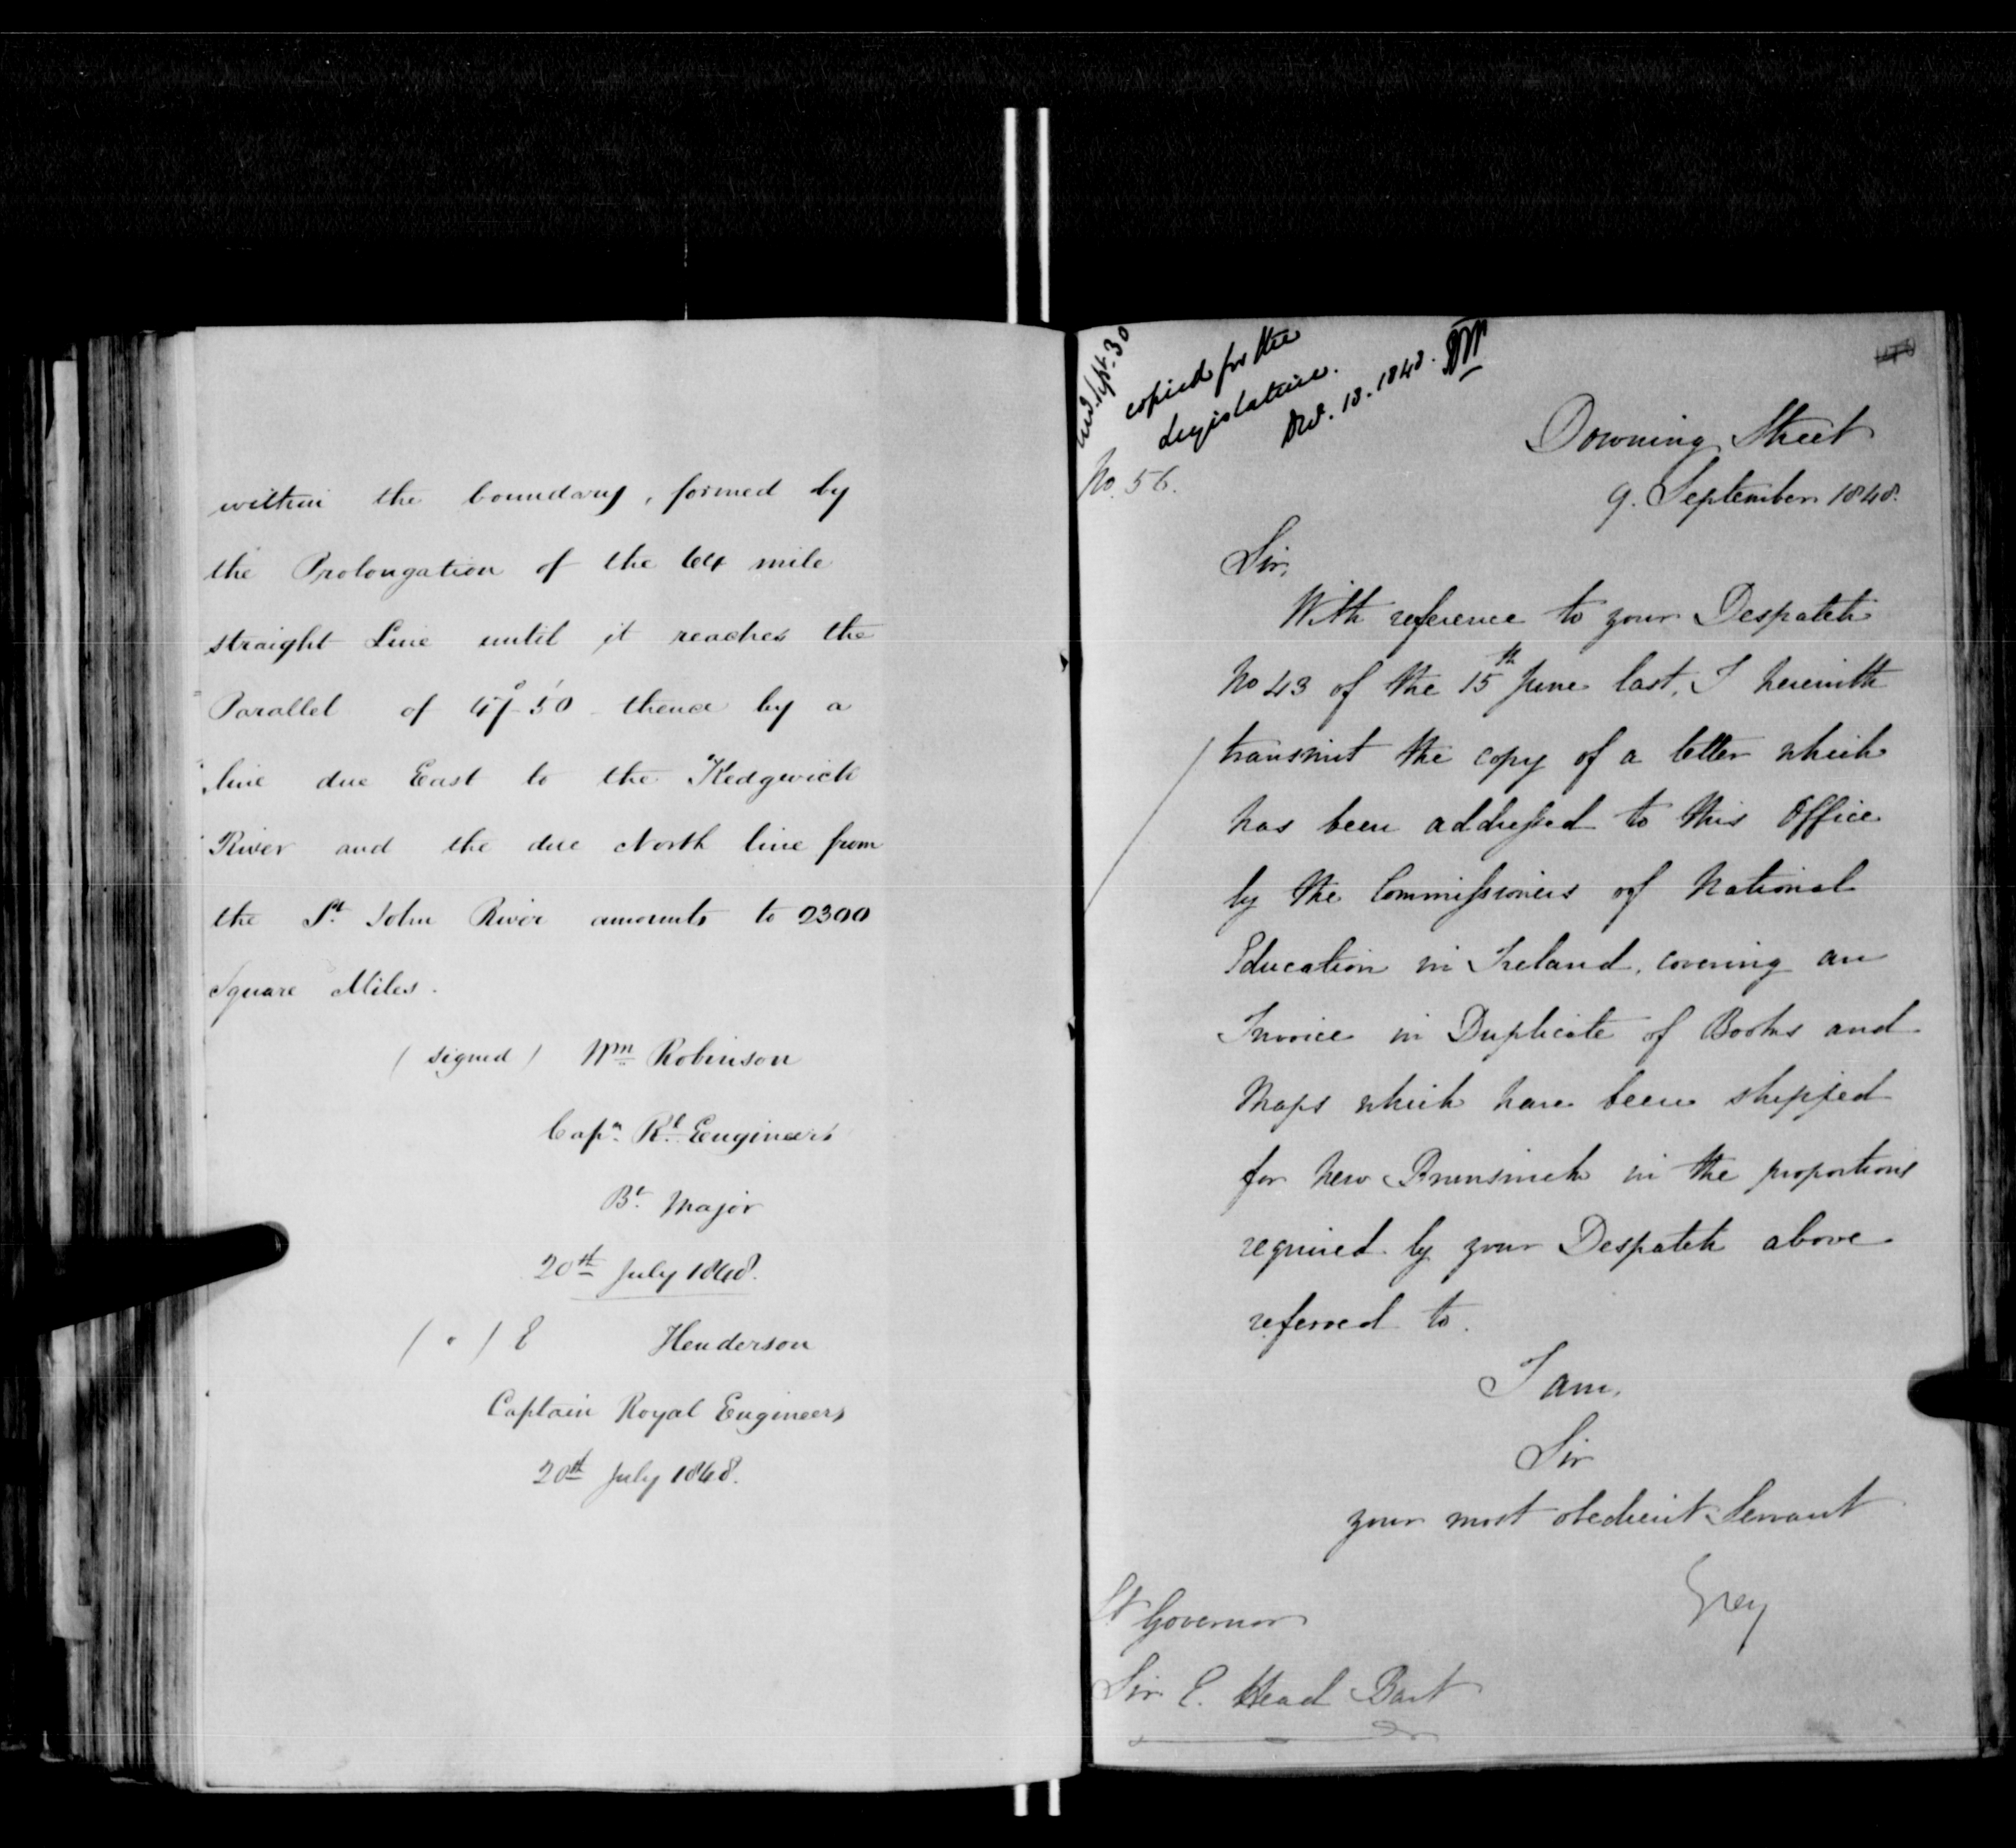 within the boundary, formed by
the Prolongation of the 64 mile
straight Line until it reaches the
Parallel of 47° 50' thence by a
line due East to the Kedgwick
River and the due North line from
the St. John River amounts to 2300
Square Miles.
(signed) Wm Robinson
Capn. Rl. Engineers
Bt. Major
20th July 1848.
( " ) E Henderson
Captain Royal Engineers
20th July 1848.
Sept. 30
copied for the
Legislature.
13. 1848.
No. 56.
Downing Street
9. September 1848.
Sir,
With reference to your Despatch
No 43 of the 15th June last, I herewith
transmit the copy of a letter which
has been addressed to this Office
by the Commissioners of National
Education in Ireland, covering an
Invoice in Duplicate of Books and
Maps which have been shipped
for New Brunswick in the proportions
required by your Despatch above
referred to.
I am,
Sir
your most obedient Servant
Grey
Lt Governor
Sir E. Head Bart